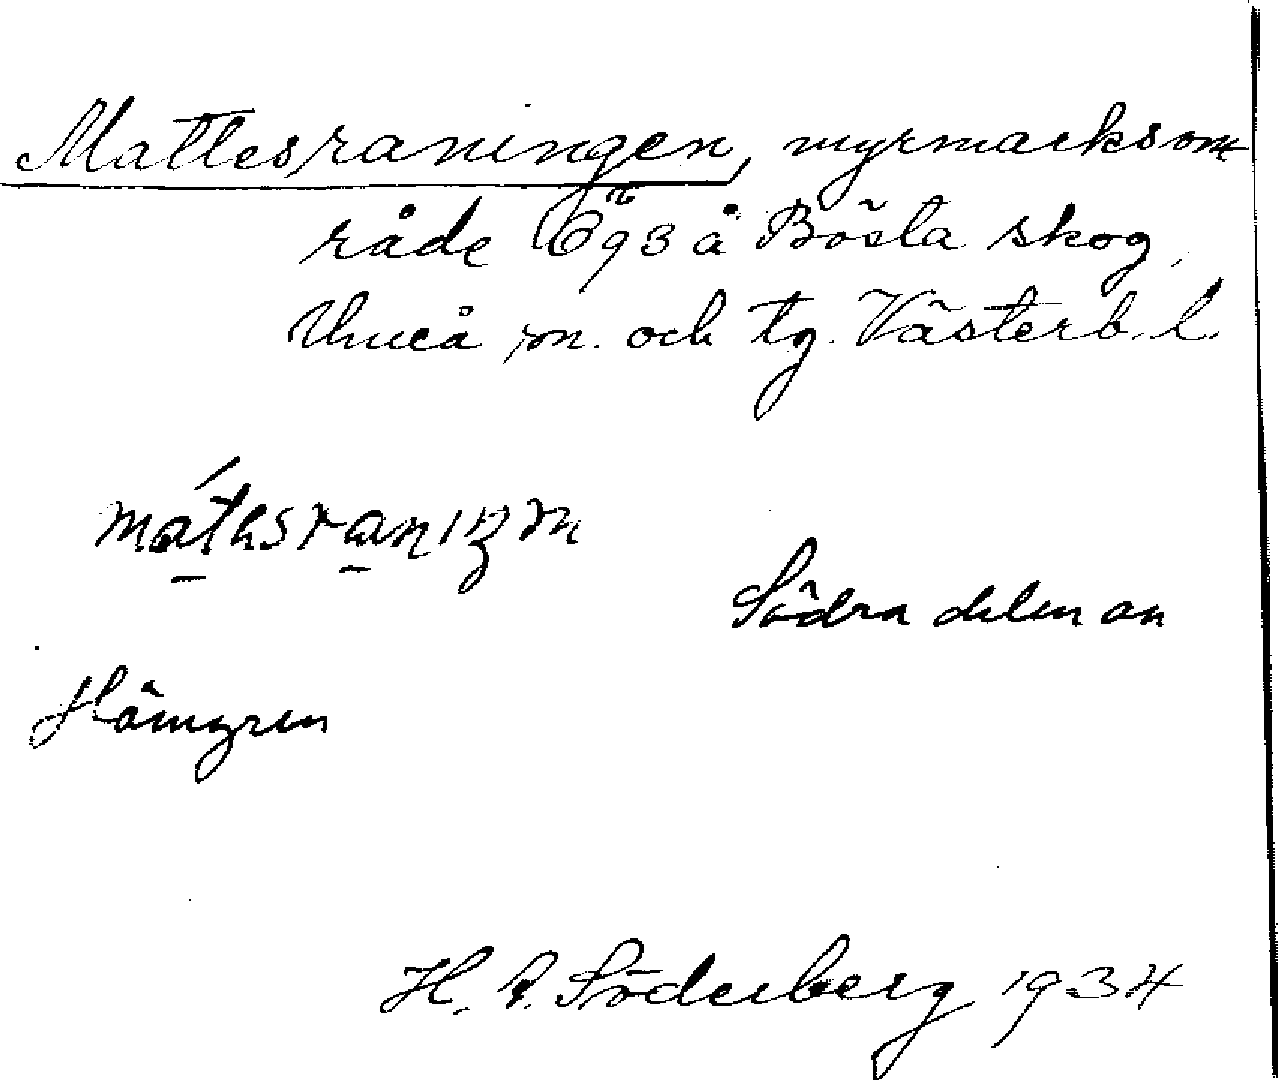 Mattesraningen, myrmarksom-
råde Ö 93 å Bösta skog,
Umeå sn. och tg. Västerb. l.
Södra delen av
Hömyren
H. P. Söderberg 1934